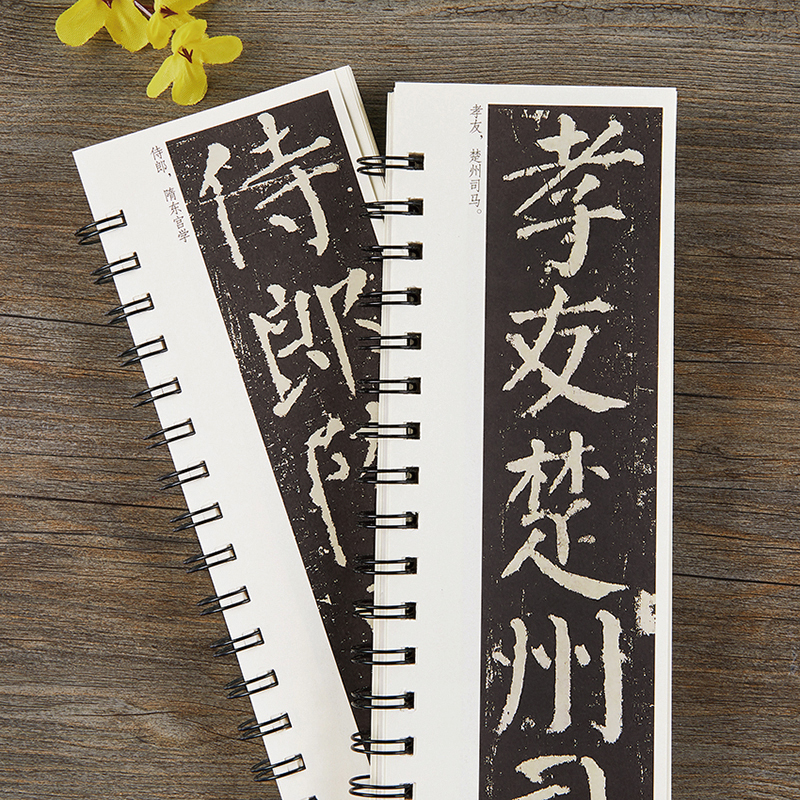 侍郎，隋东宫学
侍郎
孝友，楚州司马。
孝友楚州司